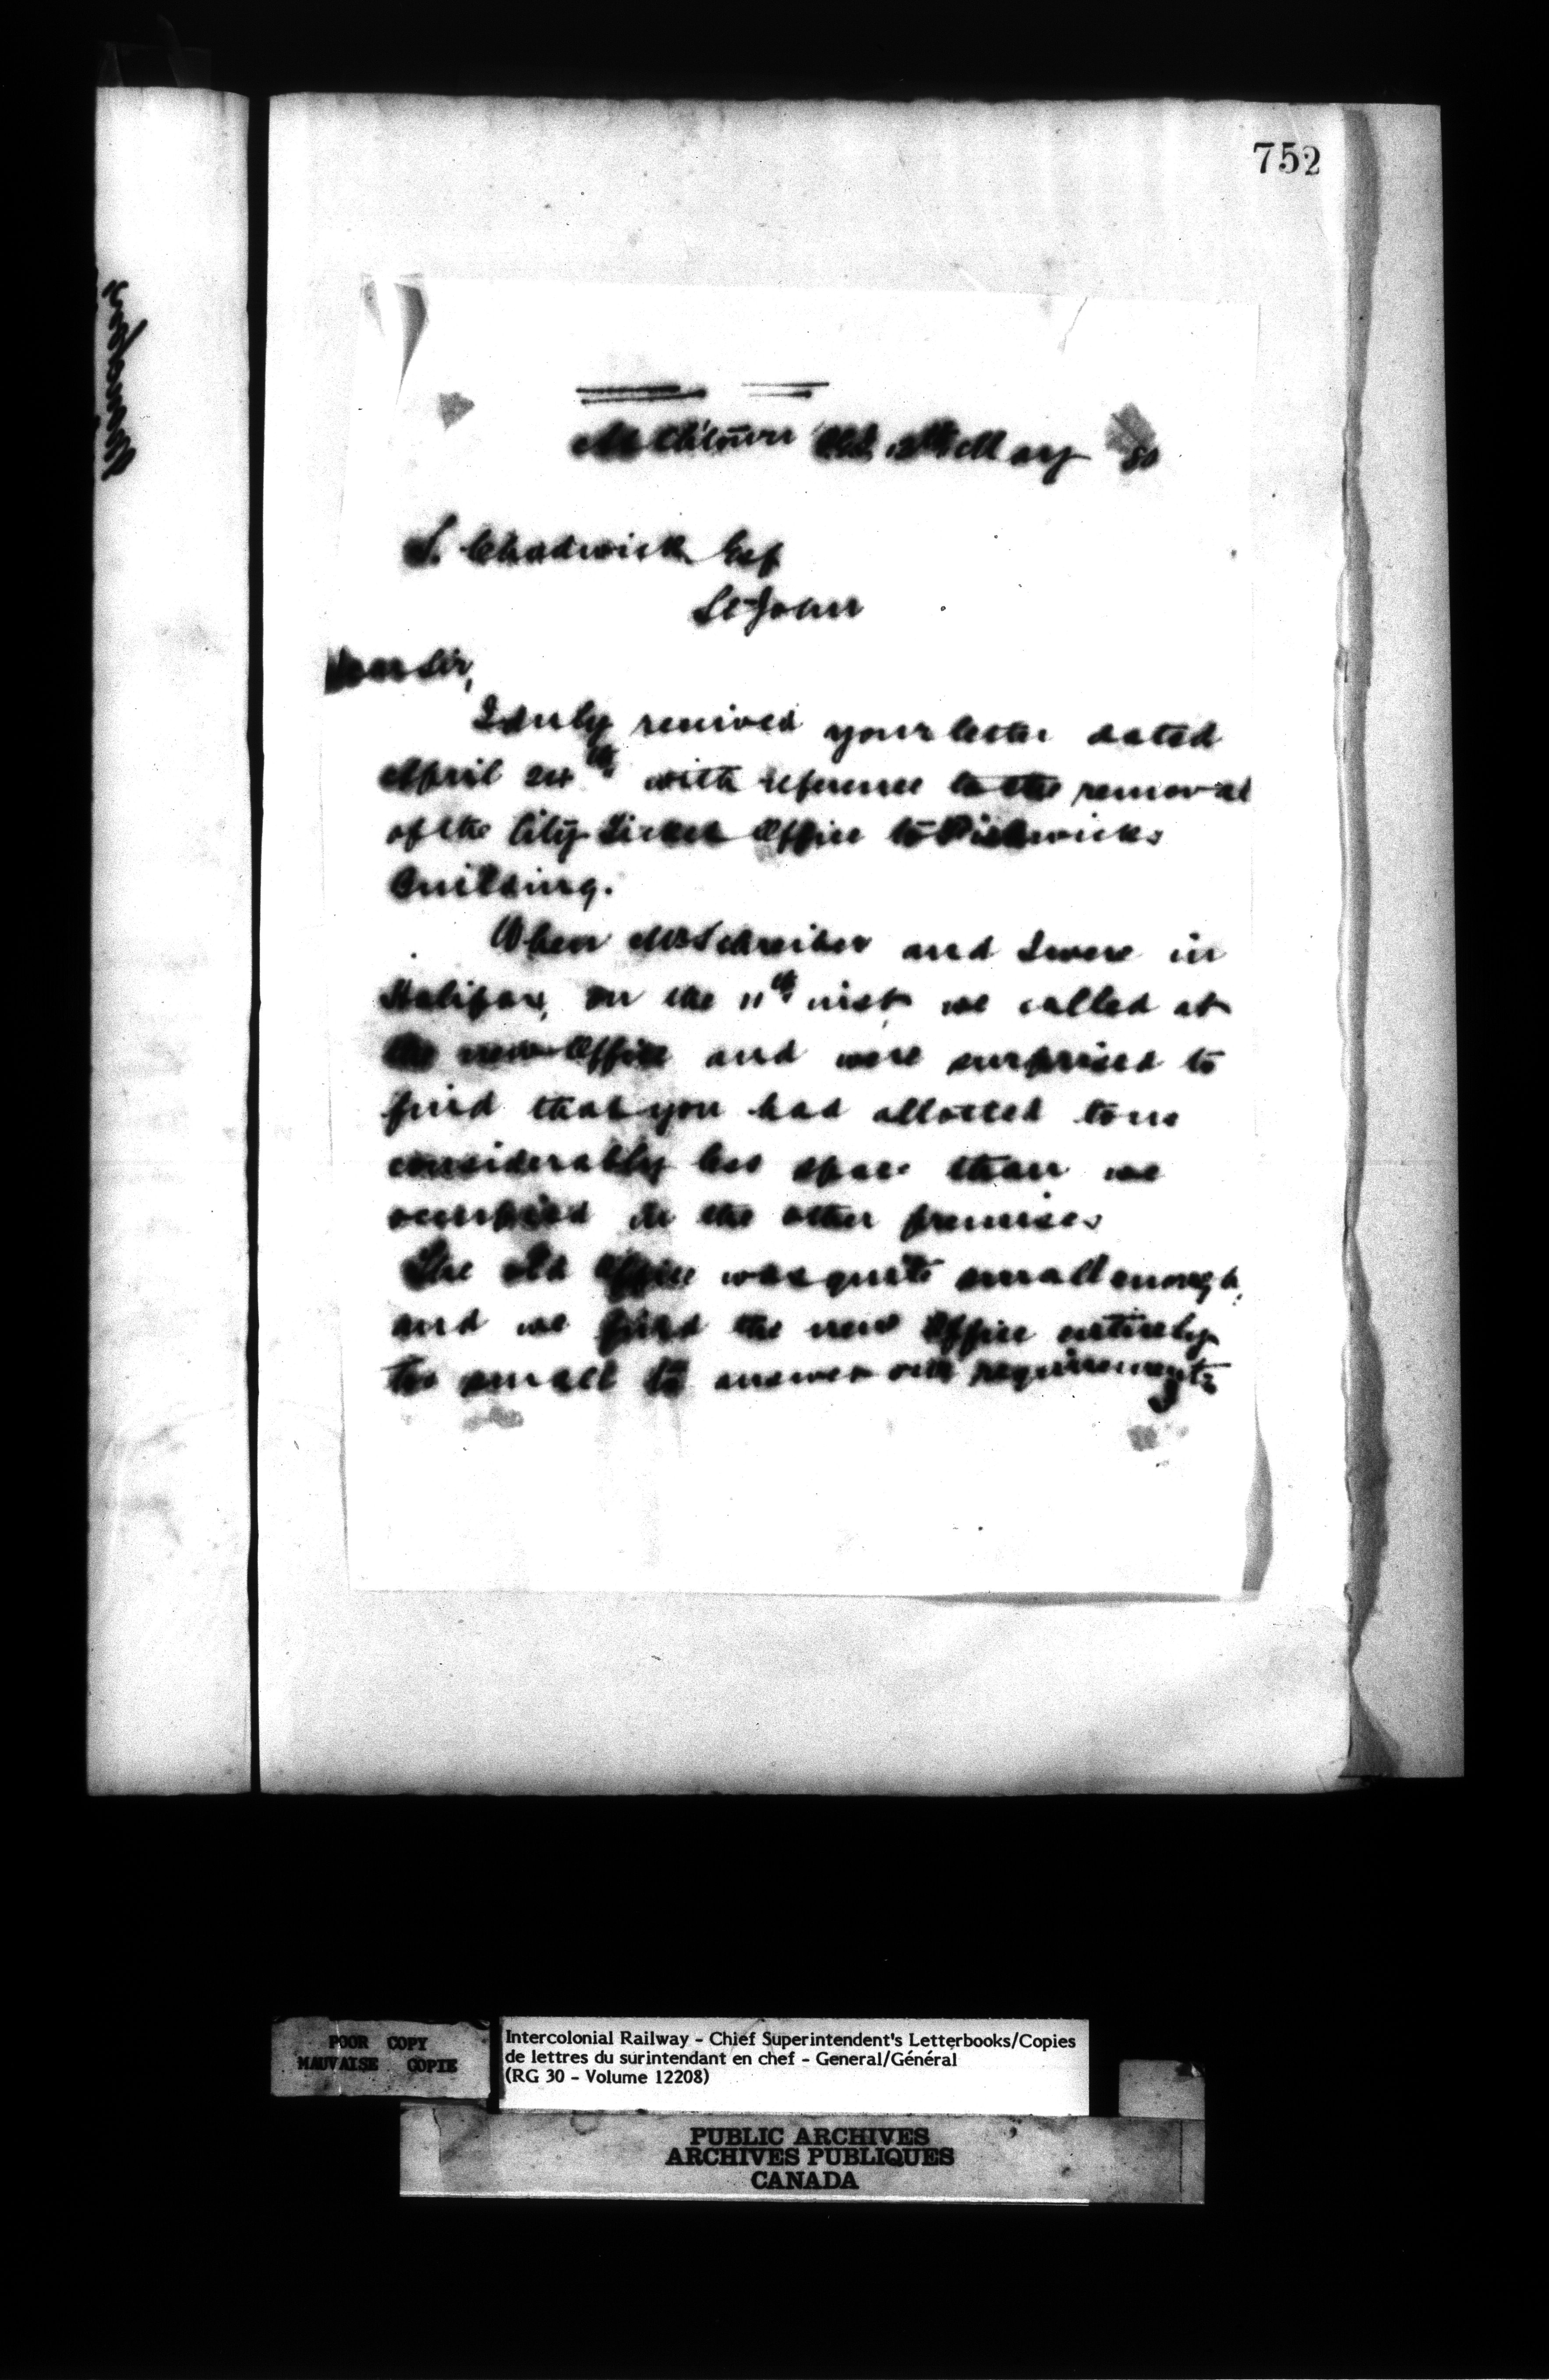 752
12th May 80
S. Chadwick Esq
St John
Dear Sir,
I duly received your letter dated
April 24th with reference to the removal
of the City Ticket Office to
Building.
When Mr Schreiber and I were in
Halifax, on the 11th inst, we called at
the new Office and were surprised to
find that you had allotted to us
considerably less space than we
occupied in the other premises
The old Office was quite small enough,
and we find the new Office entirely
too small to answer our requirements
POOR COPY
MAUVAISE COPIE
Intercolonial Railway - Chief Superintendent's Letterbooks/Copies
de lettres du surintendant en chef - General/Général
(RG 30 - Volume 12208)
PUBLIC ARCHIVES
ARCHIVES PUBLIQUES
CANADA